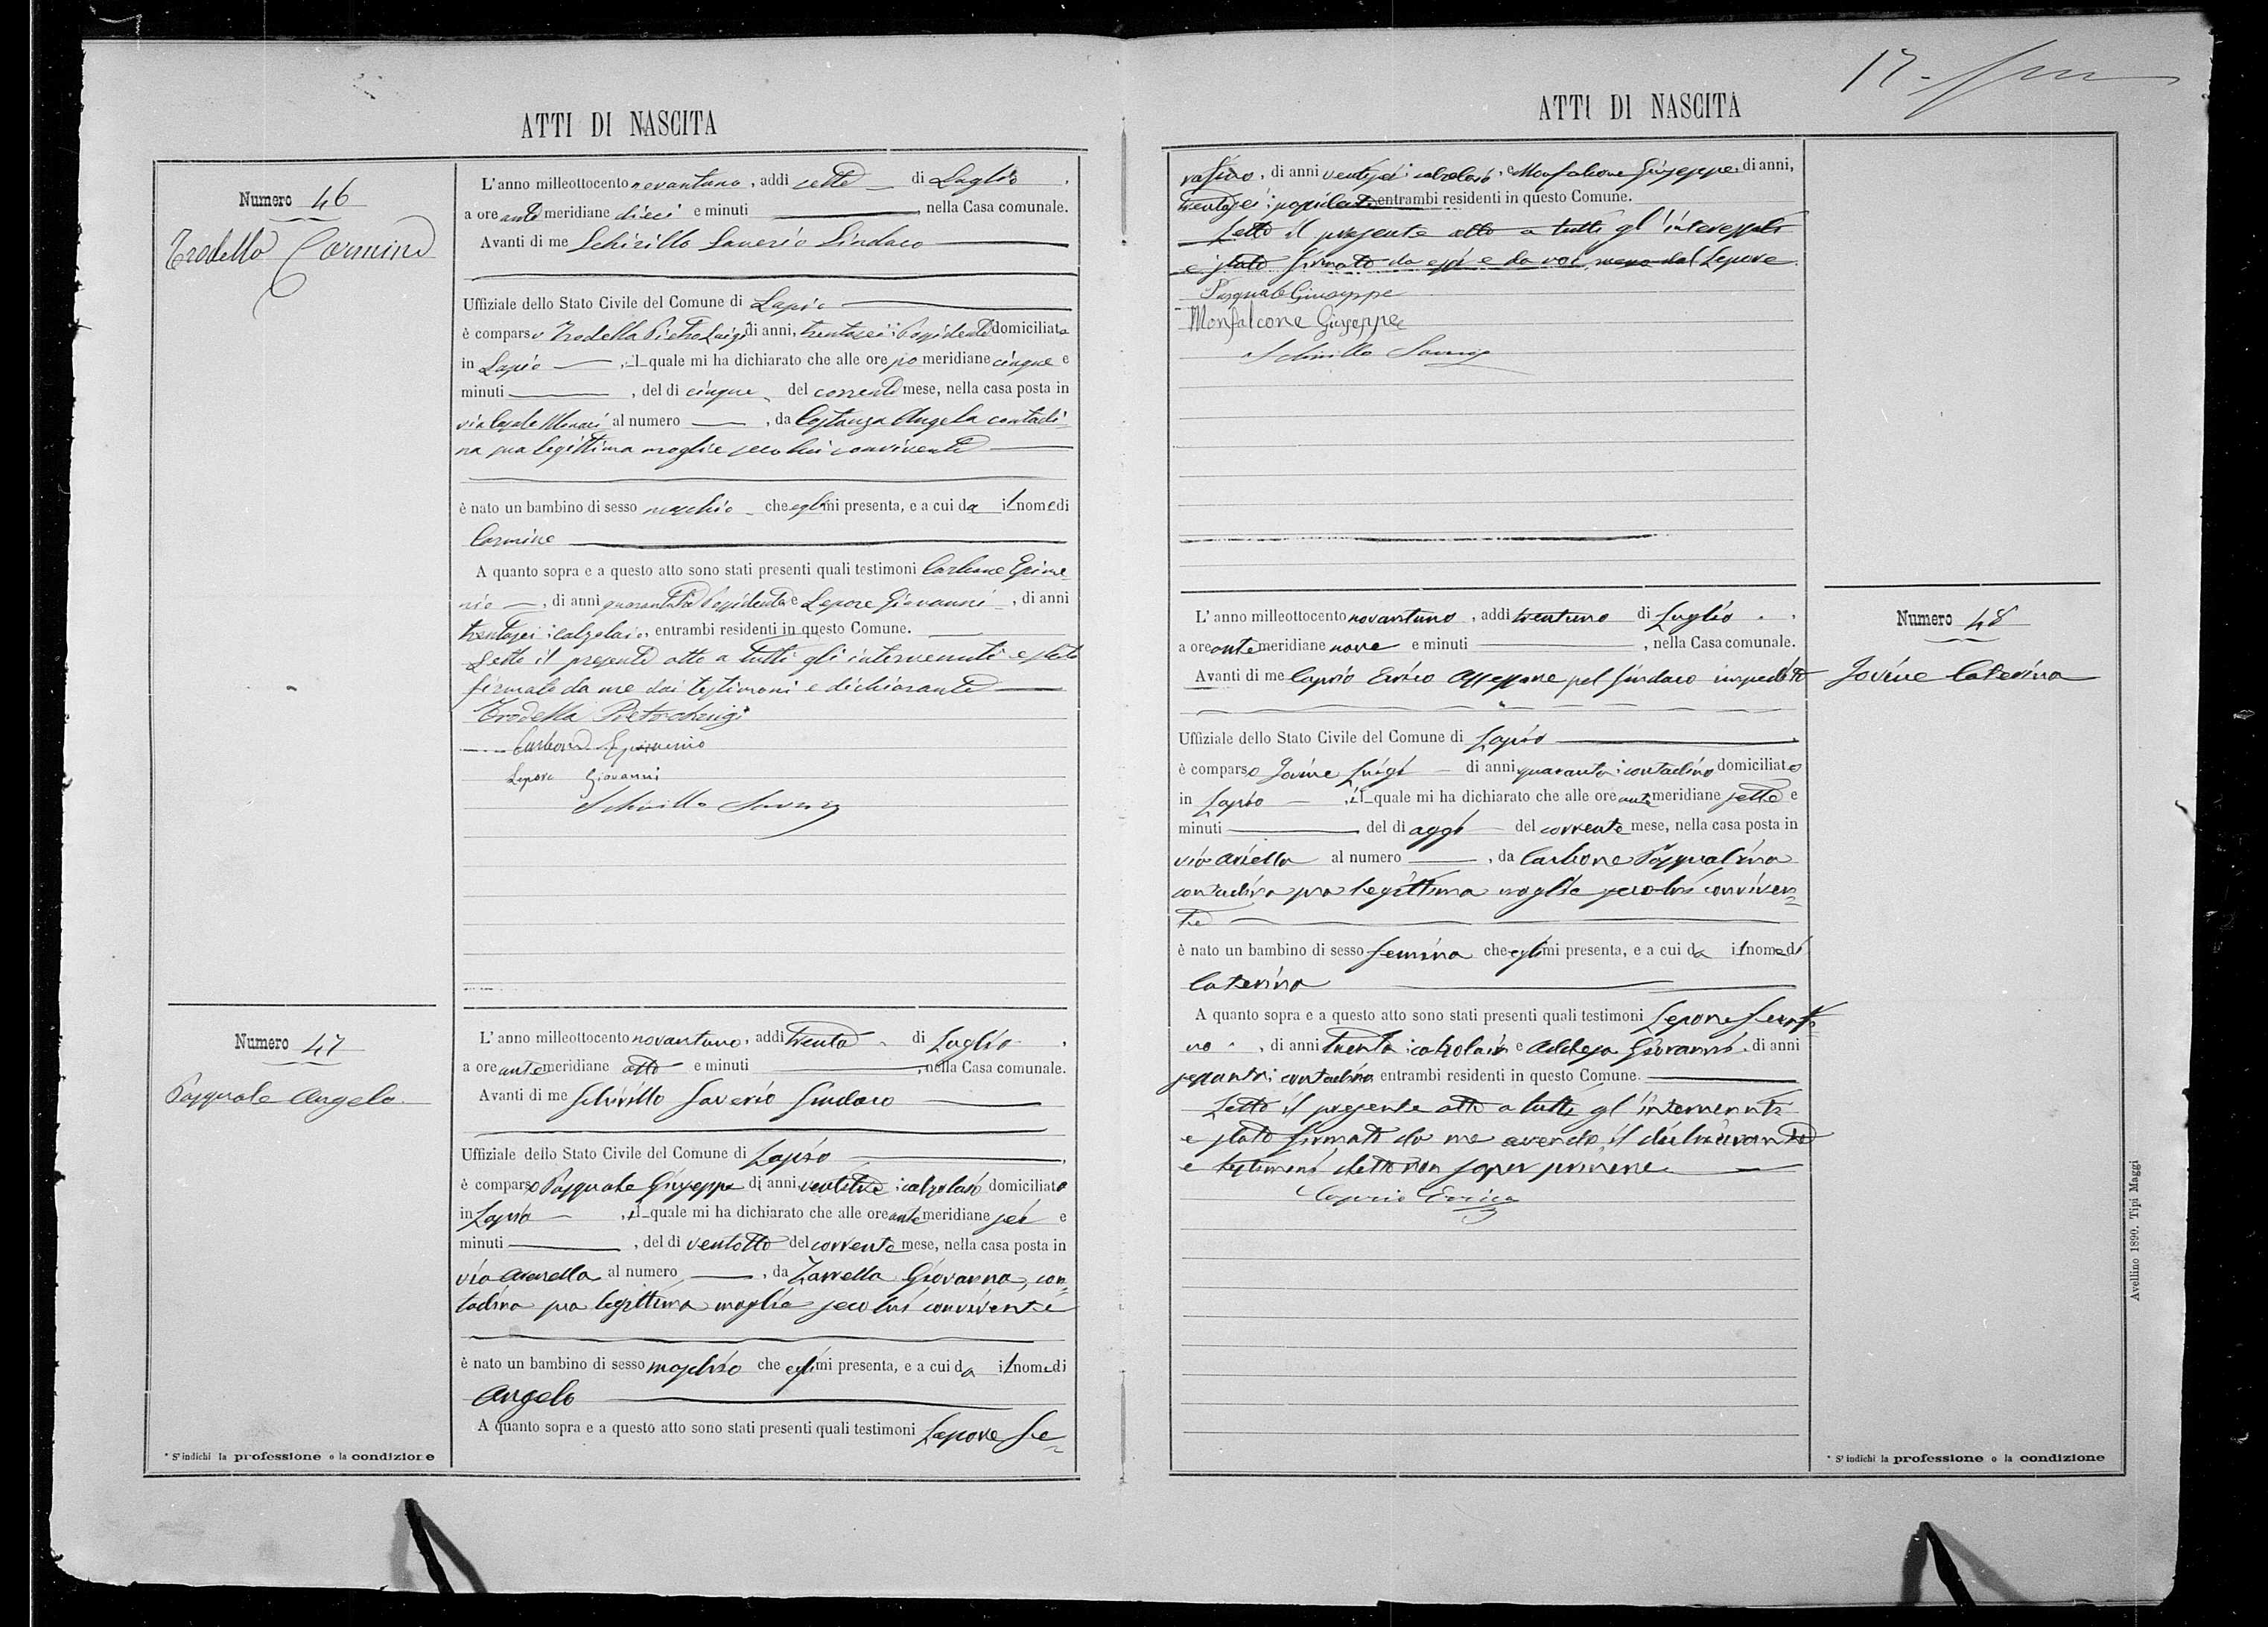 17
ATTI DI NASCITA
Numero 46
Trodella Carmine
L'anno millottocento novantuno, addì sette di Luglio,
a ore ante meridiane dieci e minuti , nella Casa comunale.
Avanti di me Schirillo Saverio Sindaco
Uffiziale dello Stato Civile del Comune di Lapio
è comparso Trodella Pietro Luigi di anni, trentasei: Possidente domiciliato
in Lapio , il quale mi ha dichiarato che alle ore po meridiane cinque e
minuti , del dì cinque del corrente mese, nella casa posta in
via Casale al numero , da Costanza Angela contadi-
na sua legittima moglie seco lui convivente
è nato un bambino di sesso maschio che egli mi presenta, e a cui da il nome di
Carmine
A quanto sopra e a questo atto sono stati presenti quali testimoni Carbone Epime-
nio, di anni Possidente e Lepore Giovanni, di anni
trentasei: calzolaio, entrambi residenti in questo Comune.
Letto il presente atto a tutti gli intervenuti e stato
firmato da me dai testimoni e dichiarante
Trodella Pietro Luigi
Carbone Epimenio
Lepore Giovanni
Schirillo Saverio
Numero 47
Pasquale Angelo
L'anno millottocento novantuno, addì trenta di Luglio,
a ore ante meridiane otto e minuti , nella Casa comunale.
Avanti di me Schirillo Saverio Sindaco
Uffiziale dello Stato Civile del Comune di Lapio
è comparso Pasquale Giuseppe di anni ventitre: calzolaio domiciliato
in Lapio , il quale mi ha dichiarato che alle ore ante meridiane sei e
minuti , del dì ventotto del corrente mese, nella casa posta in
via al numero , da Zarrella Giovanna, con-
tadina sua legittima moglie seco lui convivente
è nato un bambino di sesso maschio che egli mi presenta, e a cui da il nome di
Angelo
A quanto sopra e a questo atto sono stati presenti quali testimoni Lepore Se-
* S'indichi la professione o la condizione
ATTI DI NASCITA
rafino, di anni ventisei: calzolaio, e Monfalcone Giuseppe, di anni,
trentasei: entrambi residenti in questo Comune.
Letto il presente atto a tutti gl'interessati
e stato firmato da essi e da noi meno dal Lepore
Pasquale Giuseppe
Monfalcone Giuseppe
Schirillo Saverio
L'anno millottocento novantuno, addì trentuno di Luglio,
a ore ante meridiane nove e minuti , nella Casa comunale.
Avanti di me Caprio Errico Assessore pel Sindaco impedito
Numero 48
Jovine Caterina
Uffiziale dello Stato Civile del Comune di Lapio
è comparso Jovine Luigi di anni quaranta: contadino domiciliato
in Lapio , il quale mi ha dichiarato che alle ore ante meridiane sette e
minuti del dì oggi del corrente mese, nella casa posta in
via Ariella al numero , da Carbone Pasqualina
contadina sua legittima moglie seco lui conviven-
te
è nato un bambino di sesso femina che egli mi presenta, e a cui da il nome di
Caterina
A quanto sopra e a questo atto sono stati presenti quali testimoni Lepore
no, di anni trenta: calzolaio e Giovanni, di anni
sessanta: contadino entrambi residenti in questo Comune.
Letto il presente atto a tutti gl'intervenuti
e stato firmato da me avendo il dichiarante
e testimoni detto non saper
Caprio Errico
Avellino 1890. Tipi Maggi
* S'indichi la professione o la condizione